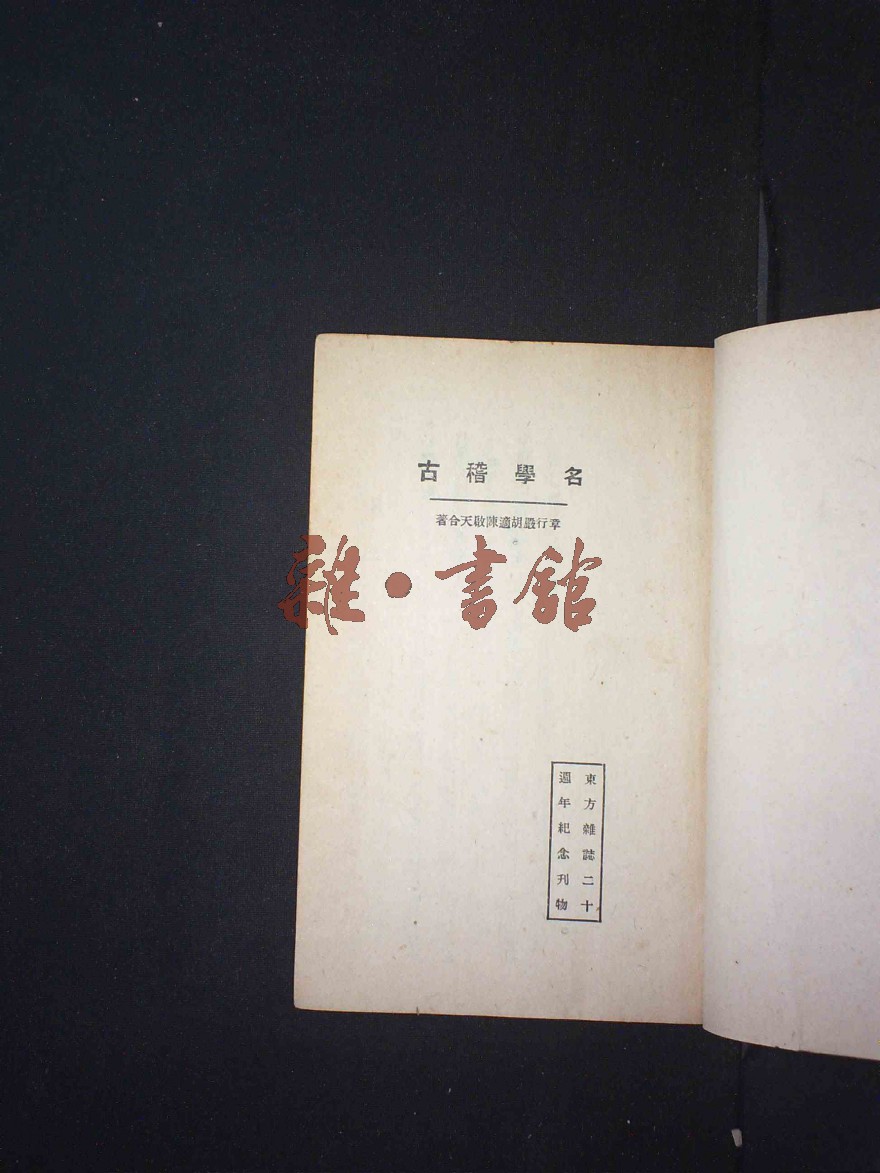 名學稽古
章行嚴胡適陳啟天合著
雜·書館
東方雜誌二十
週年紀念刊物